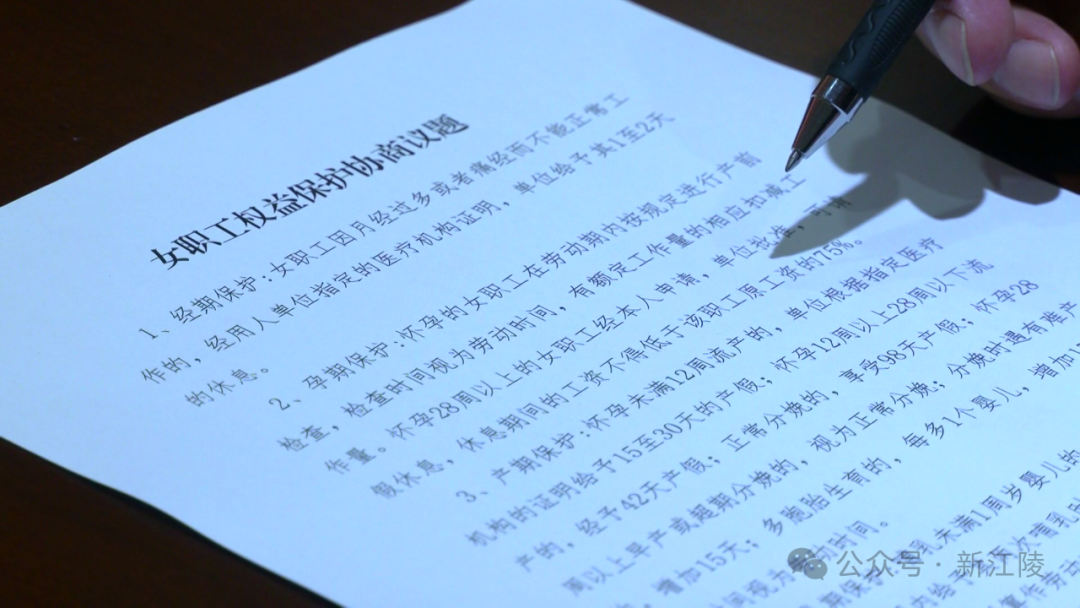 女职工权益保护协商议题
1、经期保护:女职工因月经过多或者痛经而不能正常工
作的,经用人单位指定的医疗机构证明,单位给予其1至2天
的休息。
2、孕期保护:怀孕的女职工在劳动期内按规定进行产前
检查,检查时间视为劳动时间,有额定工作量的相应扣减工
作量。怀孕28周以上的女职工经本人申请,单位批准,可请
假休息,休息期间的工资不得低于该职工原工资的75%。
3、产期保护:怀孕未满12周流产的,单位根据指定医疗
机构的证明给予15至30天的产假;怀孕12周以上28周以下流
产的,给予42天产假;正常分娩的,享受98天产假;怀孕28
周以上早产或超期分娩的,视为正常分娩;分娩时遇有难产
,增加15天;多胞胎生育的,每多1个婴儿,增加1
间视为
动时间。
期保
乳未满1周岁婴儿的
内给予
次哺乳
公众号·新江陵